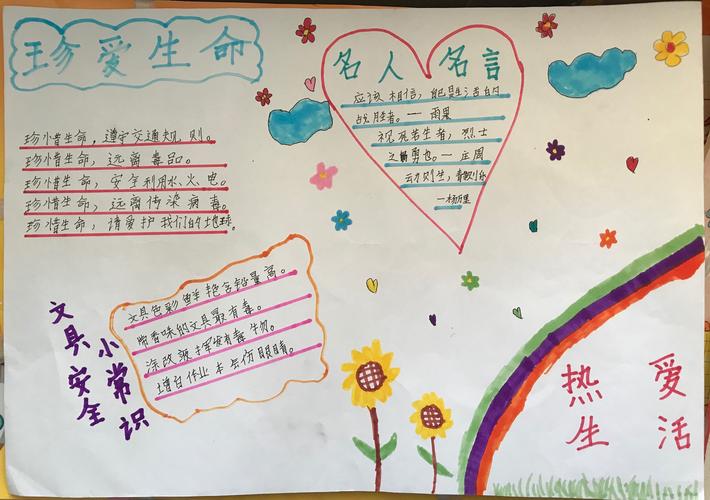 珍爱生命
珍惜生命，遵守交通规则。
珍惜生命，远离毒品。
珍惜生命，安全利用水、火、电。
珍惜生命，远离传染病毒。
珍惜生命，请爱护我们的地球。
名人名言
应该相信，自己是生活的
战胜者。—雨果
视死若生者，烈士
之勇也。—庄周
动则生，静则乐
文具安全
小常识
文具色彩鲜艳含铅量高。
带香味的文具最有毒。
涂改液挥发有毒物。
增白作业本会伤眼睛。
热爱
生活